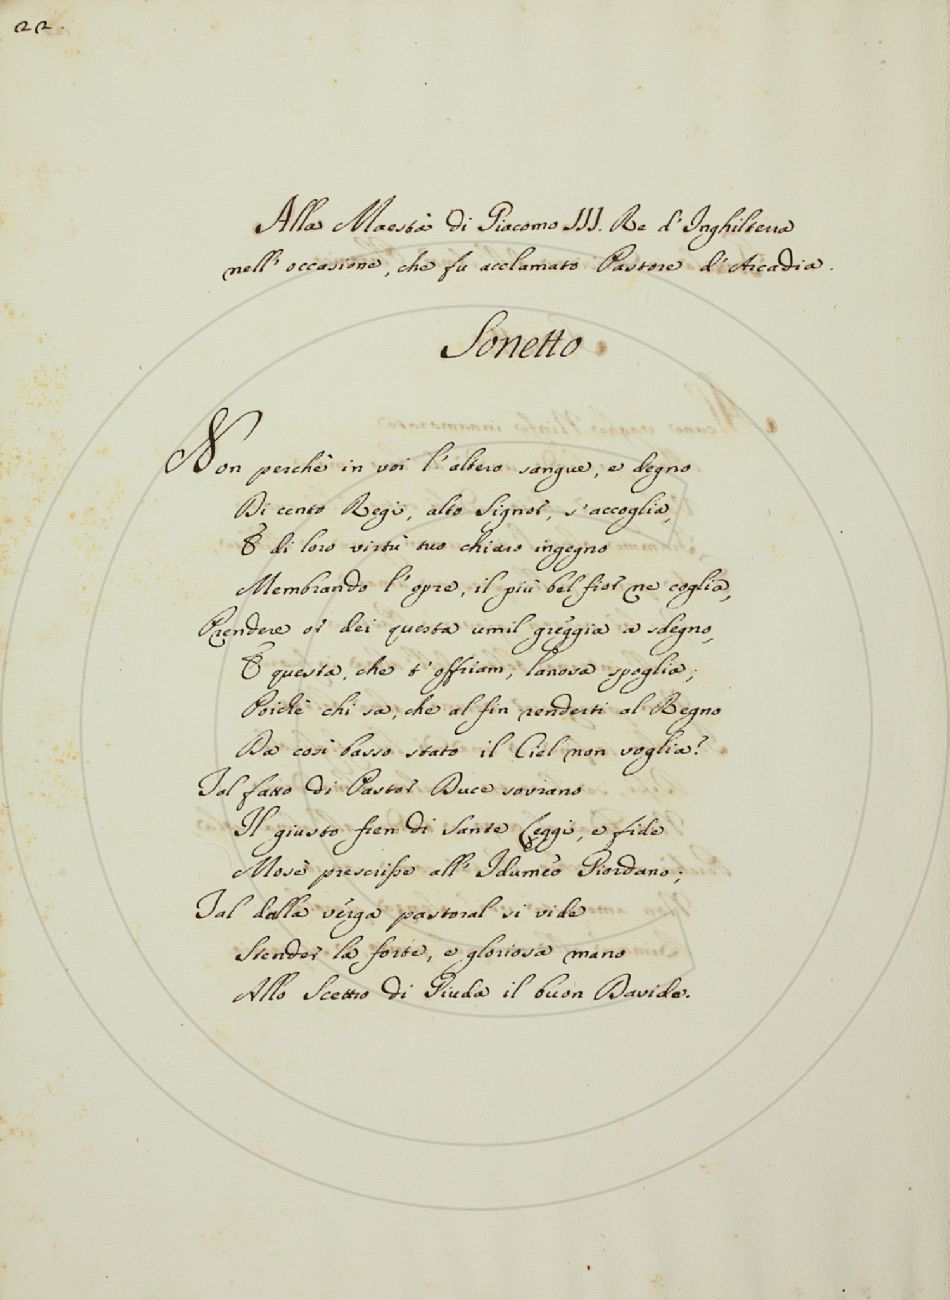 22.
Alla Maestà di Giacomo III. Re d'Inghilterra
nell'occasione, che fu acclamato Pastore d'Arcadia.
Sonetto
Non perchè in voi l'altero sangue, e degno
Di cento Regi, alto Signor, s'accoglia,
E di loro virtù tuo chiaro ingegno
Membrando l'opre, il più bel fior ne coglia,
Prendere or dei questa umil greggia a sdegno,
E questa, che t'offriam, lanosa spoglia;
Poichè chi sa, che al fin renderti al Regno
Da così basso stato il Ciel non voglia?
Tal fatto di Pastor Duce sovrano
Il giusto fren di sante Leggi, e fide
Mosè prescrisse all'Idumeo Giordano;
Tal dalla verga pastoral si vide
Stender la forte, e gloriosa mano
Allo Scettro di Giuda il buon Davide.